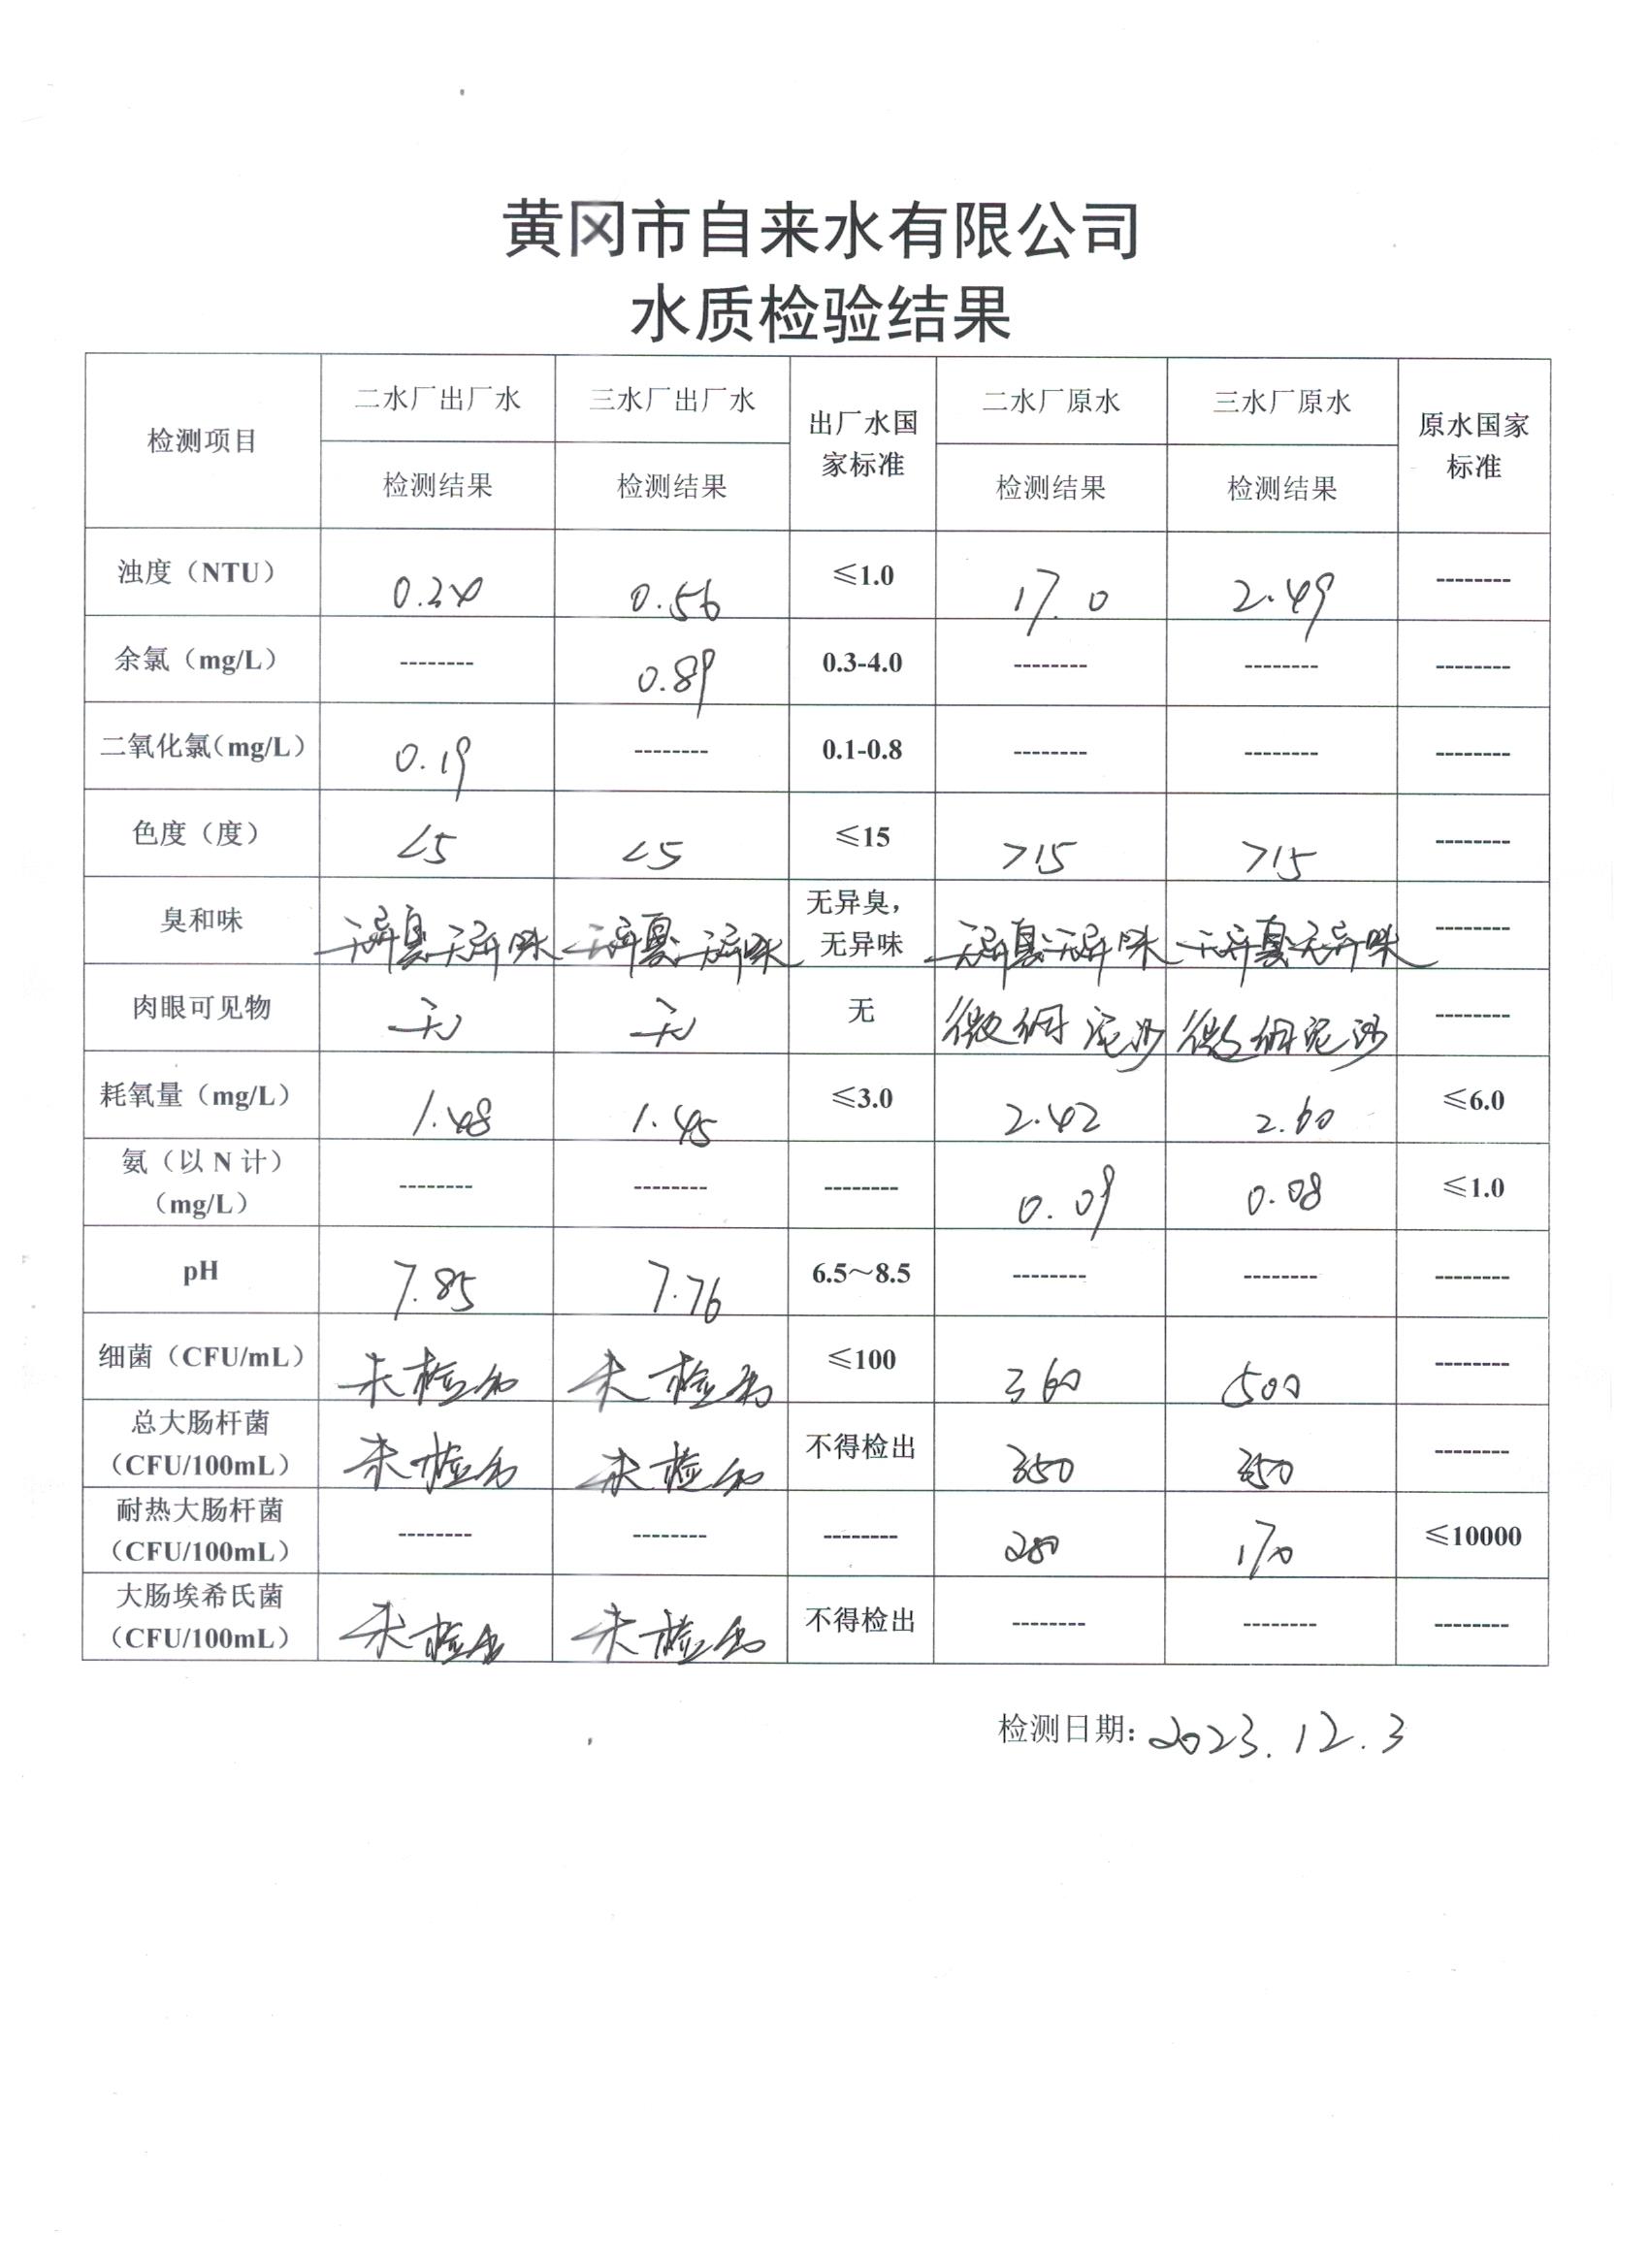 黄冈市自来水有限公司
水质检验结果
检测项目 二水厂出厂水 三水厂出厂水 出厂水国家标准 二水厂原水 三水厂原水 原水国家标准
检测结果 检测结果 检测结果 检测结果
浊度（NTU） 0.34 0.56 ≤1.0 17.0 2.49 --------
余氯（mg/L） -------- 0.89 0.3-4.0 -------- -------- --------
二氧化氯（mg/L） 0.19 -------- 0.1-0.8 -------- -------- --------
色度（度） <5 <5 ≤15 >15 >15 --------
臭和味 无异臭无异味 无异臭无异味 无异臭，无异味 无异臭无异味 无异臭无异味 --------
肉眼可见物 无 无 无 微细泥沙 微细泥沙 --------
耗氧量（mg/L） 1.48 1.45 ≤3.0 2.42 2.60 ≤6.0
氨（以 N 计）（mg/L） -------- -------- -------- 0.09 0.08 ≤1.0
pH 7.85 7.76 6.5～8.5 -------- -------- --------
细菌（CFU/mL） 未检出 未检出 ≤100 360 500 --------
总大肠杆菌（CFU/100mL） 未检出 未检出 不得检出 350 --------
耐热大肠杆菌（CFU/100mL） -------- -------- -------- 280 170 ≤10000
大肠埃希氏菌（CFU/100mL） 未检出 未检出 不得检出 -------- -------- --------
检测日期：2023.12.3